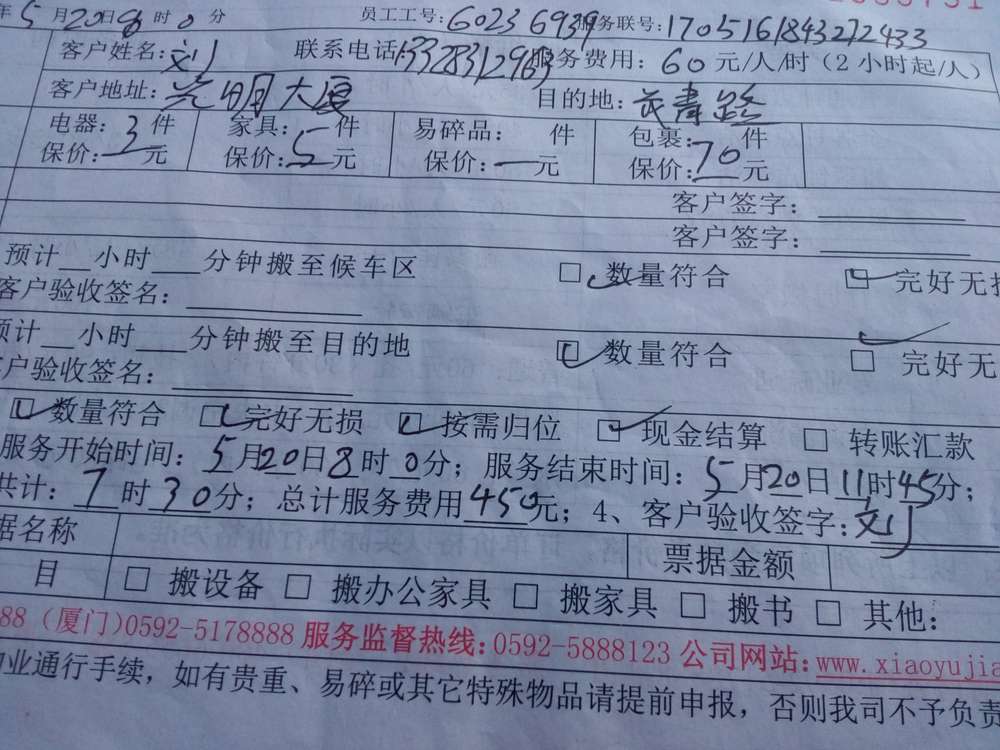 年5月20日8时0分 员工工号:60236939 服务联号:1705161843272433
客户姓名:刘 联系电话:13328312963 服务费用:60元/人/时(2小时起/人)
客户地址:光明大厦 目的地:武青路
电器:3件 家具:件 易碎品: 件 包裹:件
保价:元 保价:5元 保价:一元 保价:70元
客户签字:
客户签字:
预计__小时___分钟搬至候车区 □数量符合 □完好无损
客户验收签名:
预计__小时___分钟搬至目的地 □数量符合 □完好无
户验收签名:
□数量符合 □完好无损 □按需归位 □现金结算 □转账汇款
服务开始时间:5月20日8时0分;服务结束时间:5月20日11时45分;
共计:7时30分;总计服务费用450元;4、客户验收签字:刘
据名称 票据金额
目 □搬设备 □搬办公家具 □搬家具 □搬书 □其他:
88(厦门)0592-5178888服务监督热线:0592-5888123公司网站:www.xiaoyujia
业通行手续,如有贵重、易碎或其它特殊物品请提前申报,否则我司不予负责